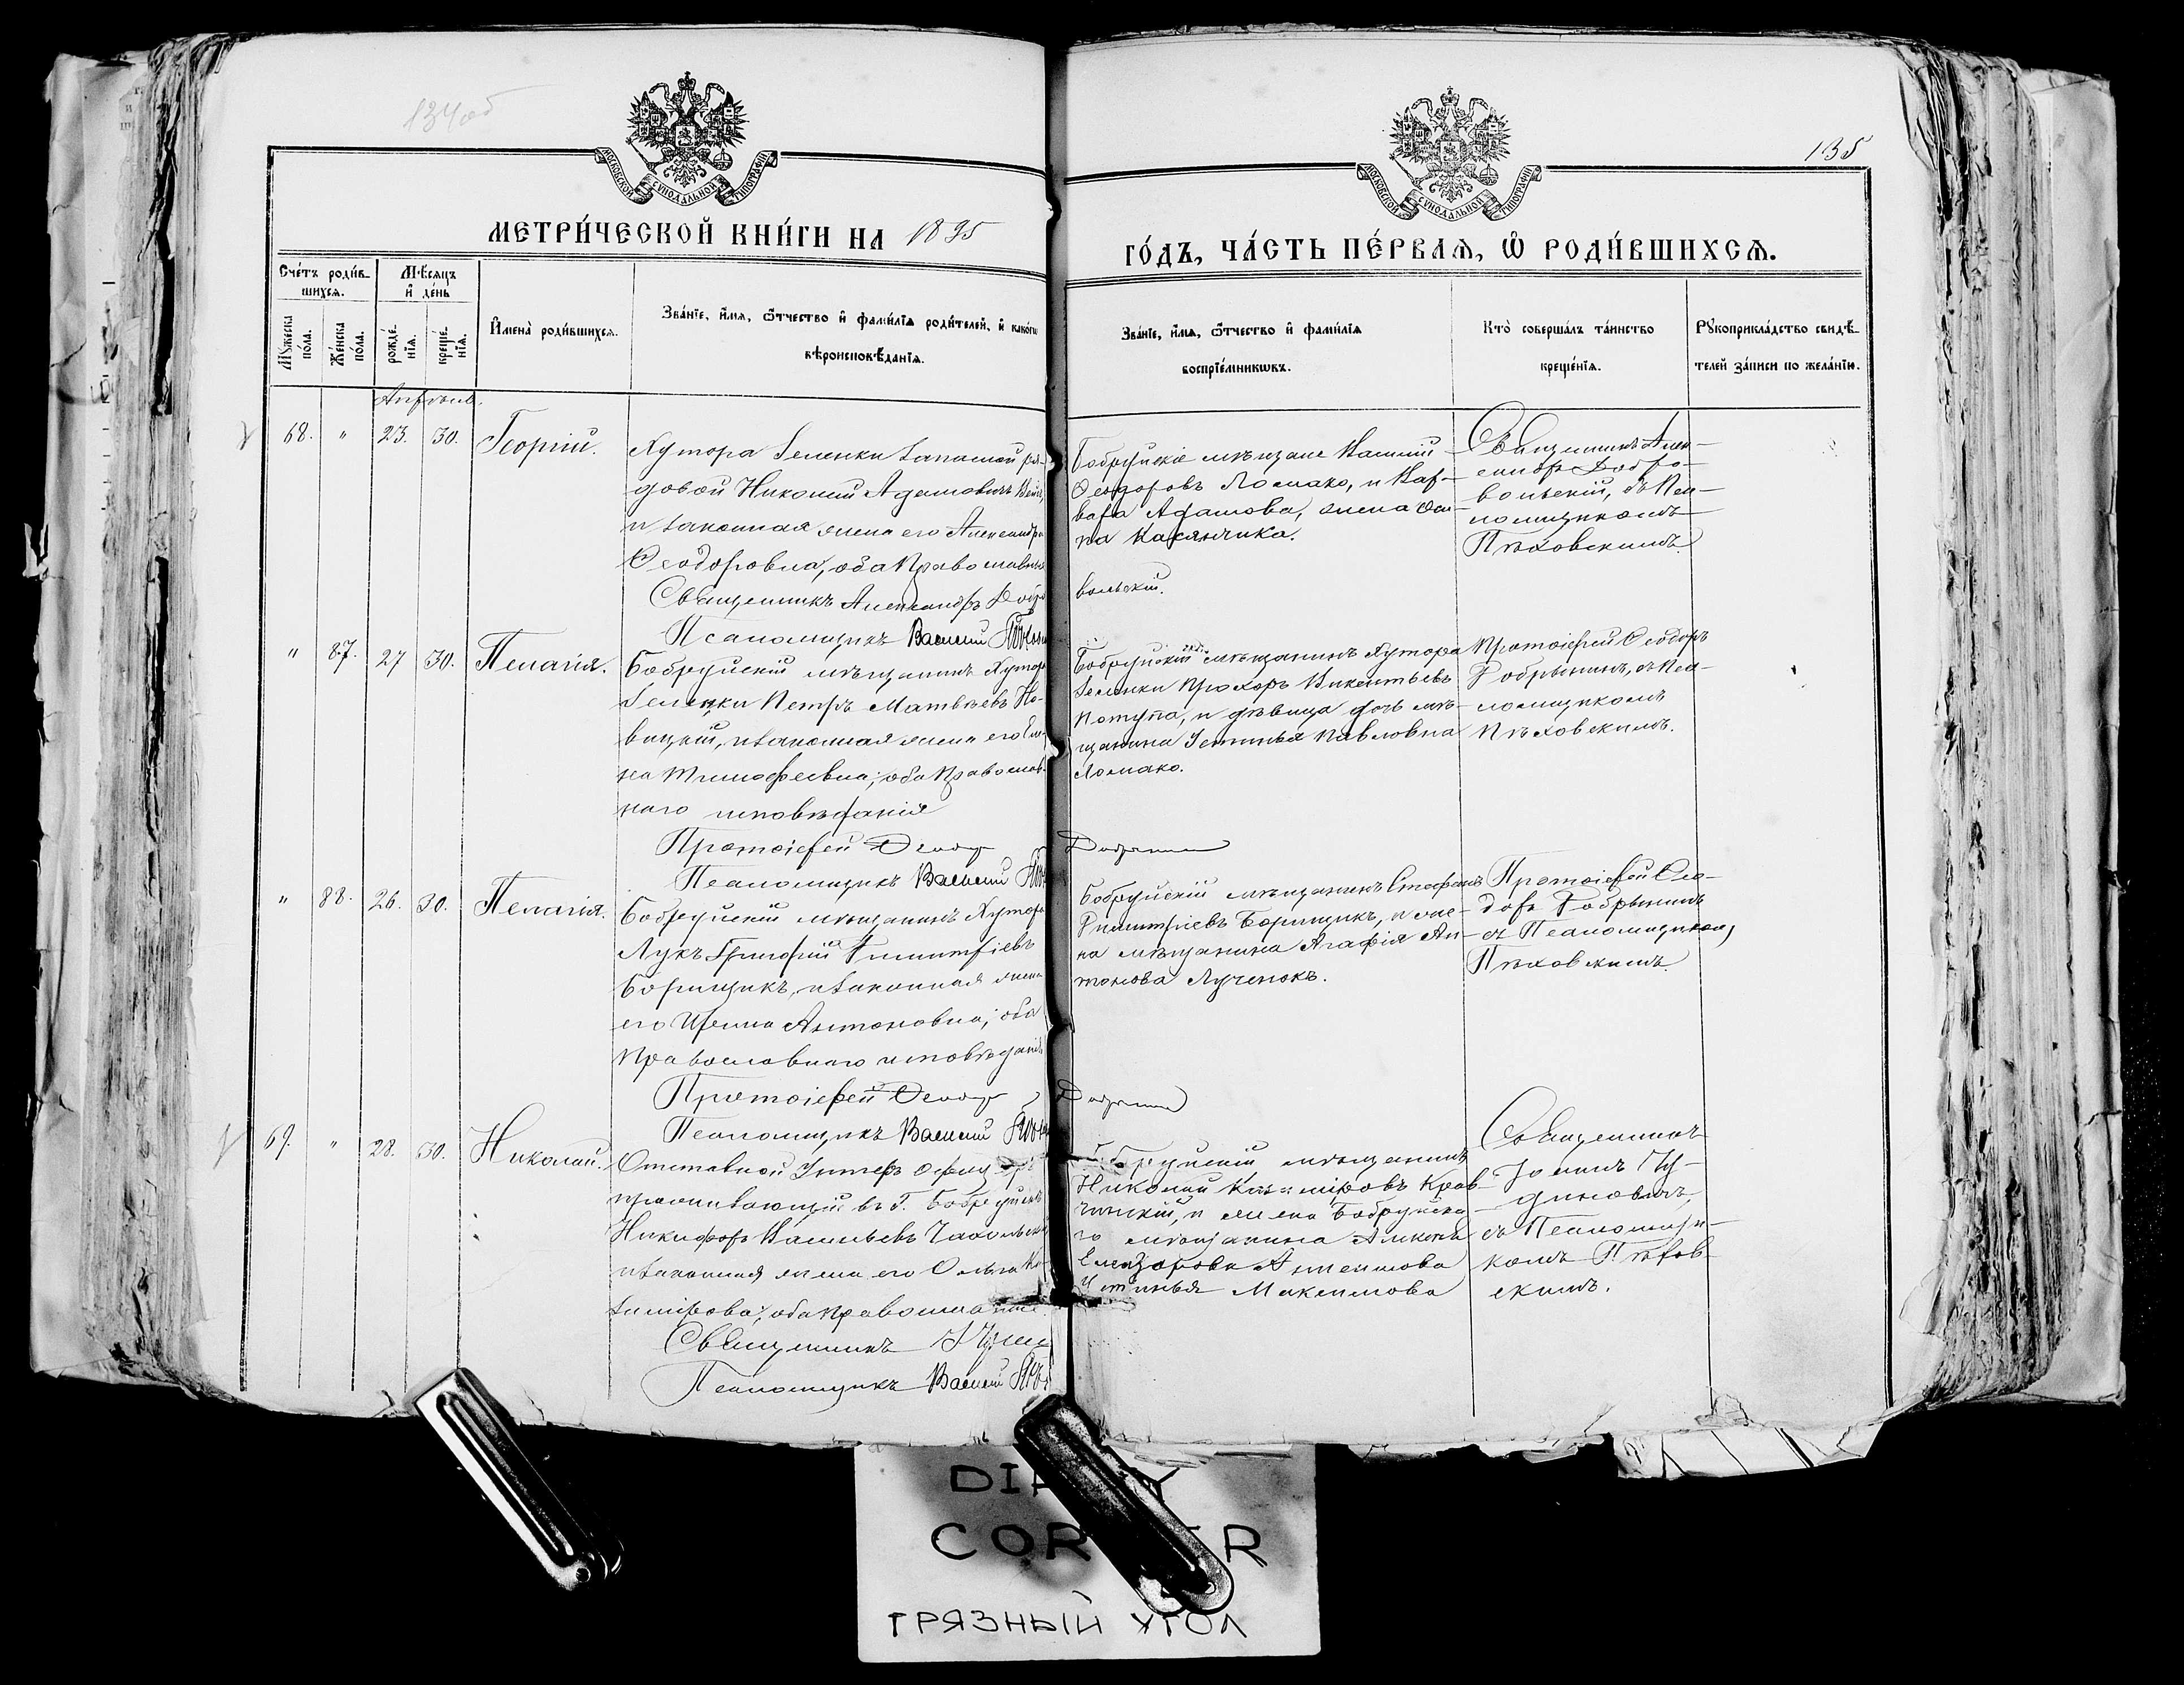 134об
135
МОСКОВСКОЙ СѴНОДАЛЬНОЙ ТИПОГРАФІИ
МОСКОВСКОЙ СѴНОДАЛЬНОЙ ТИПОГРАФІИ
МЕТРИ́ЧЕСКОЙ КНИ́ГИ НА 1895
ГО́ДЪ, ЧА́СТЬ ПЕ́РВАѦ, Ѡ҆ РОДИ́ВШИХСѦ.
Сче́тъ роди́в-
шихсѧ.
Мꙋ́жеска по́ла.
Же́нска по́ла.
Мѣ́сѧцъ
и҆ де́нь
рожде́-
нїѧ.
креще́-
нїѧ.
И҆мена̀ роди́вшихсѧ.
Зва́нїе, и҆́мѧ, ѻ҆́тчество и҆ фами́лїѧ роди́телей, и҆ како́гѡ
вѣроисповѣ́данїѧ.
Зва́нїе, и҆́мѧ, ѻ҆́тчество и҆ фами́лїѧ
воспрїе́мникѡвъ.
Кто̀ соверша́лъ та́инство
креще́нїѧ.
Рꙋкоприкла́дство свидѣ́-
телей за́писи по жела́нїю.
Апрѣль.
68. " 23. 30. Георгій.
Хутора Зеленки запасной ря-
довой Николай Адамовичъ
и законная жена его Александра
Ѳеодоровна, оба Православные
Священникъ Александръ Добро
вольскій.
Псаломщикъ Василій
Бобруйскіе мѣщане Василій
Ѳеодоровъ Ломако, и Вар-
вара Адамова, жена Оси-
па Касянчика.
Священникъ Алек-
сандръ Добро-
вольскій, съ Пса-
ломщикомъ
Пѣховскимъ.
" 87. 27 30. Пелагія.
Бобруйскій мѣщанинъ Хутора
Зеленки Петръ Матвѣевъ Но-
вицкій, и законная жена его Еле-
на Тимофеевна; оба Православ-
наго исповѣданія
Протоіерей Ѳеодоръ
Псаломщикъ Василій
Бобруйскій мѣщанинъ Хутора
Зеленки Прохоръ Викентьевъ
Потупа, и дѣвица дочь мѣ-
щанина Устинья Павловна
Ломако.
Протоіерей Ѳеодоръ
Добрынинъ, съ Пса-
ломщикомъ
Пѣховскимъ.
" 88. 26. 30. Пелагія.
Бобруйскій мѣщанинъ Хутора
Лукъ Григорій Димитріевъ
Борищикъ, и законная жена
его Ирина Антоновна; оба
Православнаго исповѣданія
Протоіерей Ѳеодоръ
Псаломщикъ Василій
Бобруйскій мѣщанинъ Стефанъ
Димитріевъ Борищикъ, и же-
на мѣщанина Агафія Ан-
тонова Лученокъ.
Протоіерей Ѳео-
доръ Добрынинъ
съ Псаломщикомъ
Пѣховскимъ
69. " 28. 30. Николай.
Отставной Унтеръ Офицеръ
проживающій въ Г. Бобруйскѣ
Никифоръ Васильевъ
и законная жена его Ольга Ка-
зимірова; оба православные.
Священникъ
Псаломщикъ Василій
Бобруйскій мѣщанинъ
Николай Казиміровъ Крав-
чинскій, и жена Бобруйска-
го мѣщанина
Елеазорова
Устинья Максимова
Священникъ
Іоаннъ
съ Псаломщи-
комъ Пѣхов-
скимъ.
DIRTY
CORNER
ГРЯЗНЫЙ УГОЛ